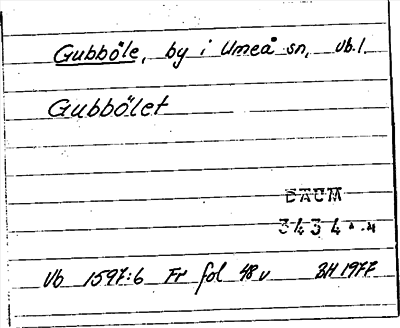 Gubböle, by i Umeå sn, Vb.l.
Gubbölet
DAUM
3434
Vb 1597:6 Fr fol 48 v BH 1977